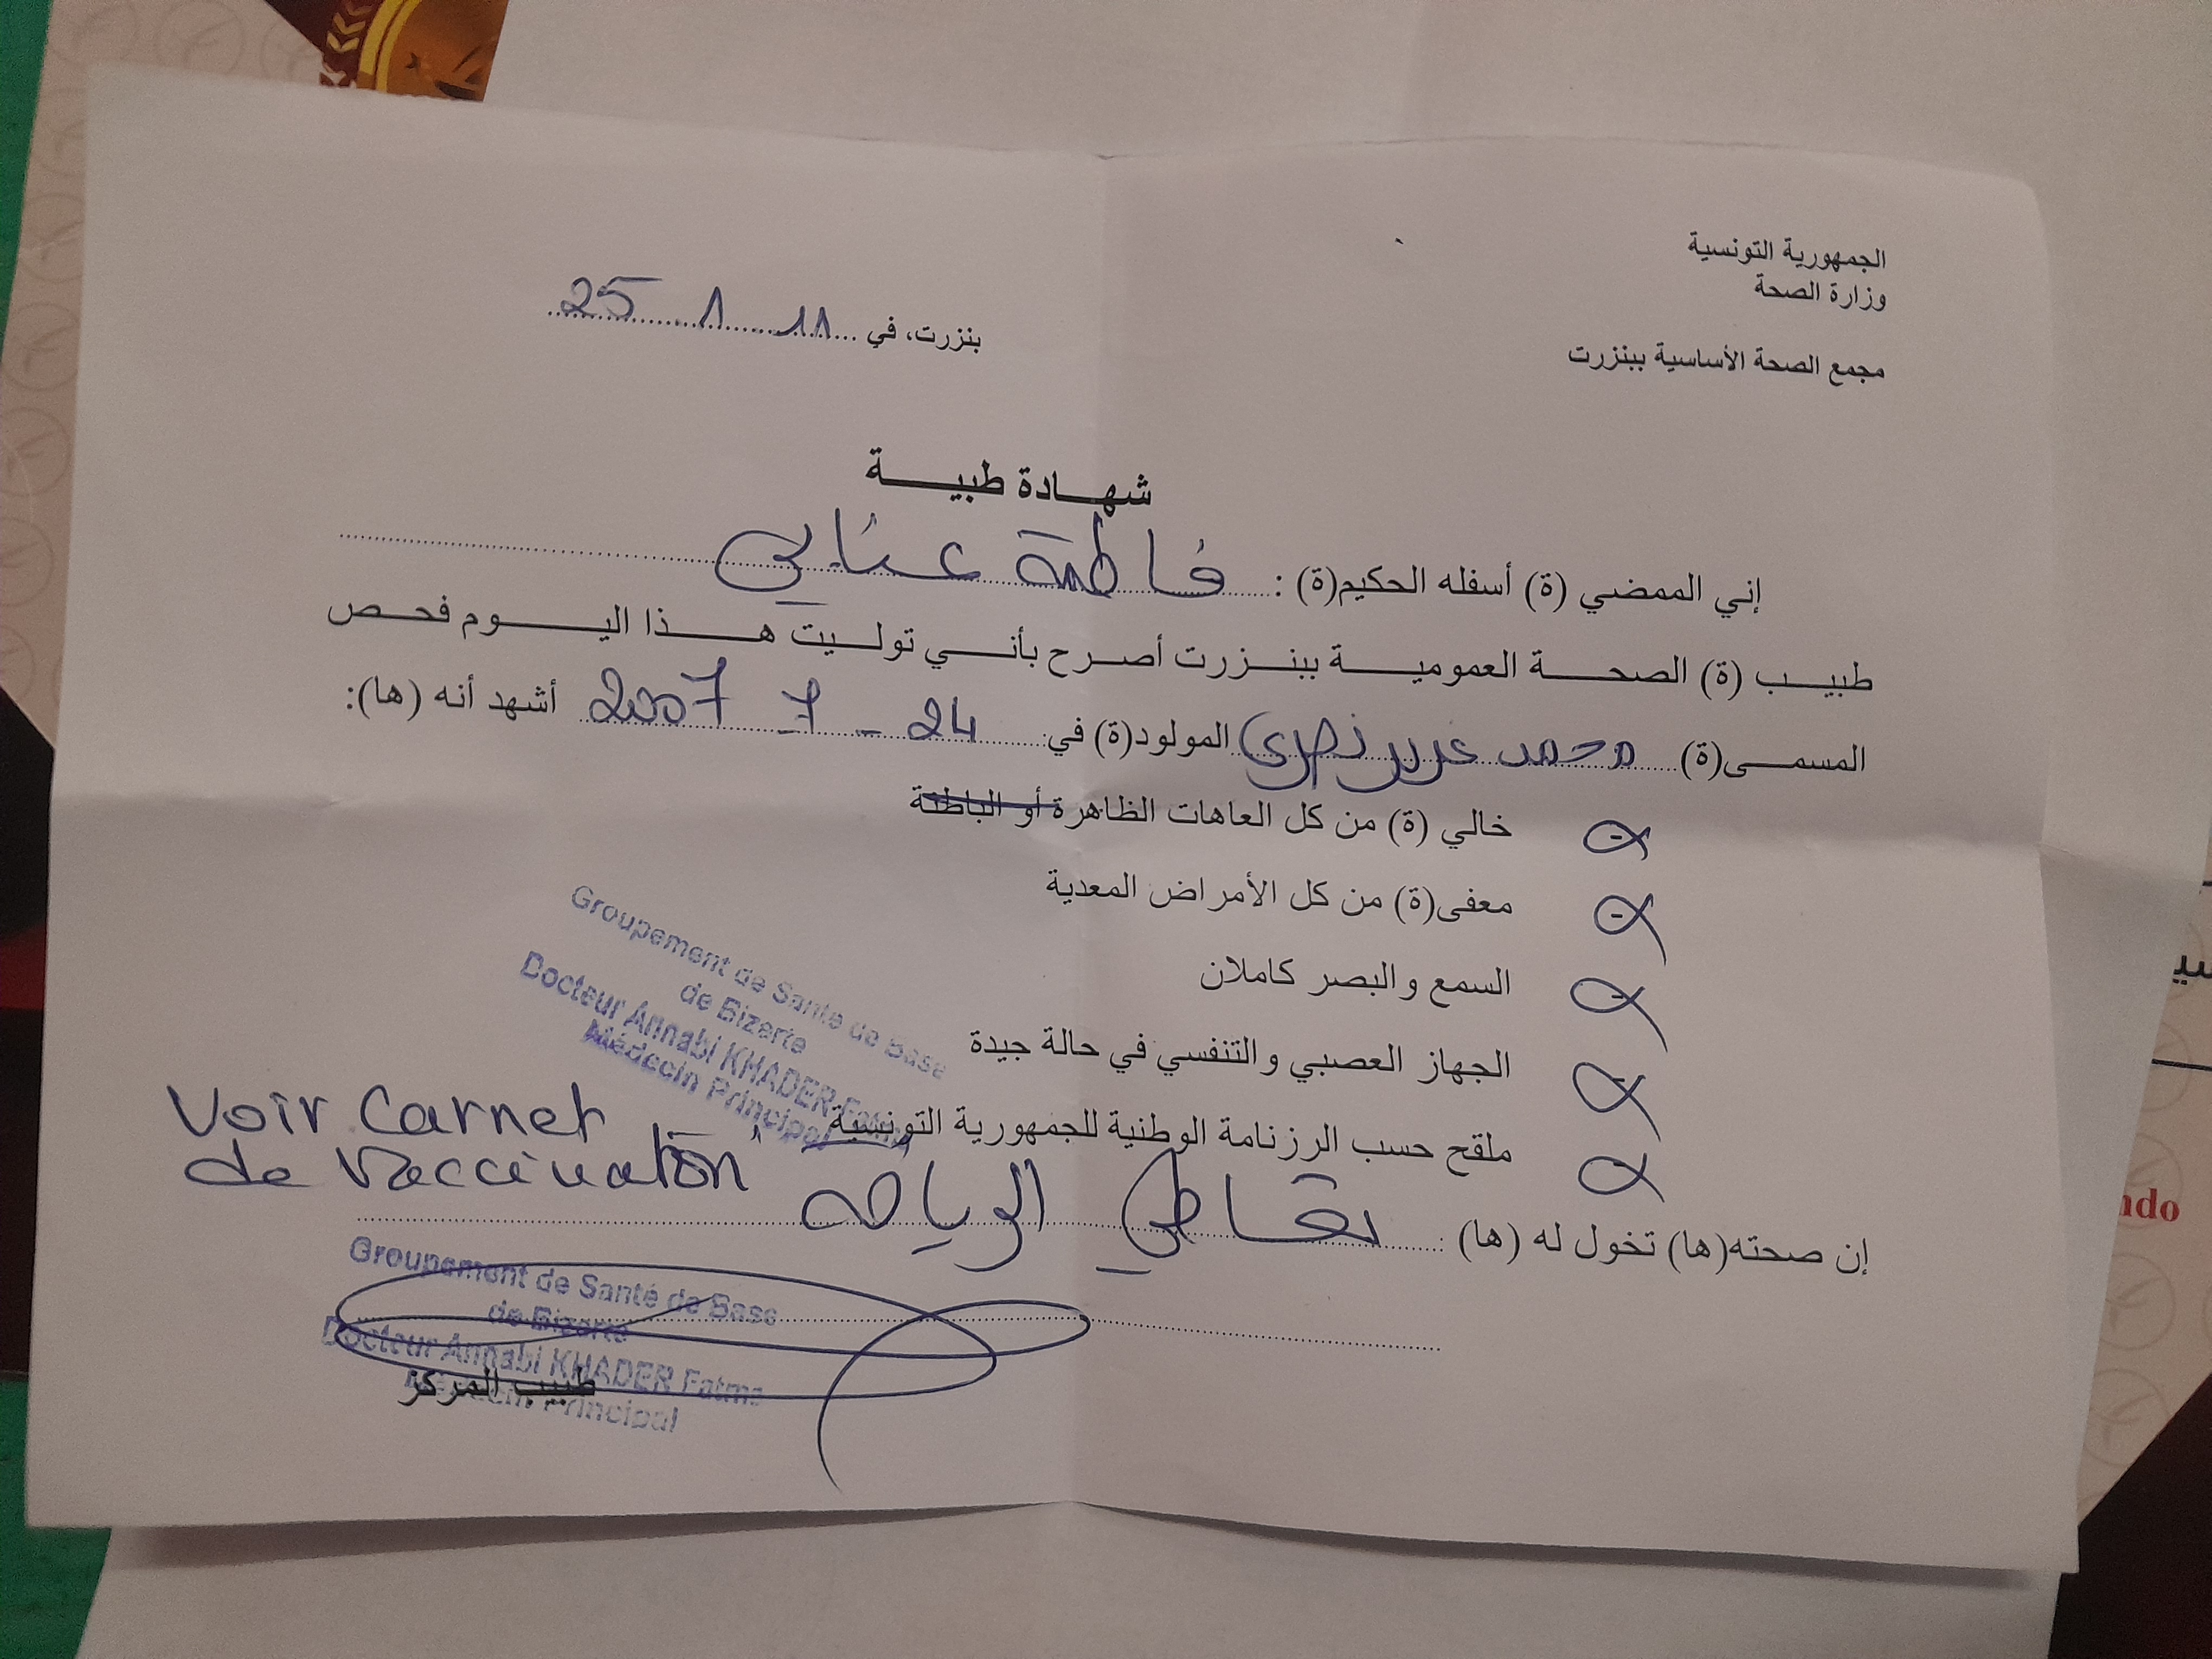 الجمهورية التونسية
وزارة الصحة
مجمع الصحة الأساسية ببنزرت
بنزرت، في 25 - 1 - 11
شهادة طبية
إني الممضي (ة) أسفله الحكيم(ة) : فاطمة عنابي
طبيب (ة) الصحة العمومية ببنزرت أصرح بأني توليت هذا اليوم فحص
المسمى(ة) محمد عزيز نصري المولود(ة) في: 24 - 7 - 2007 أشهد أنه (ها):
خالي (ة) من كل العاهات الظاهرة أو الباطنة
معفى(ة) من كل الأمراض المعدية
السمع والبصر كاملان
الجهاز العصبي والتنفسي في حالة جيدة
ملقح حسب الرزنامة الوطنية للجمهورية التونسية
Groupement de Santé de Base
de Bizerte
Docteur Annabi KHADER Fatma
Médecin Principal
Voir Carnet
de Vaccination
إن صحته(ها) تخول له (ها) : تعاطي الرياضة
Groupement de Santé de Base
de Bizerte
Docteur Annabi KHADER Fatma
Médecin Principal
طبيب المركز